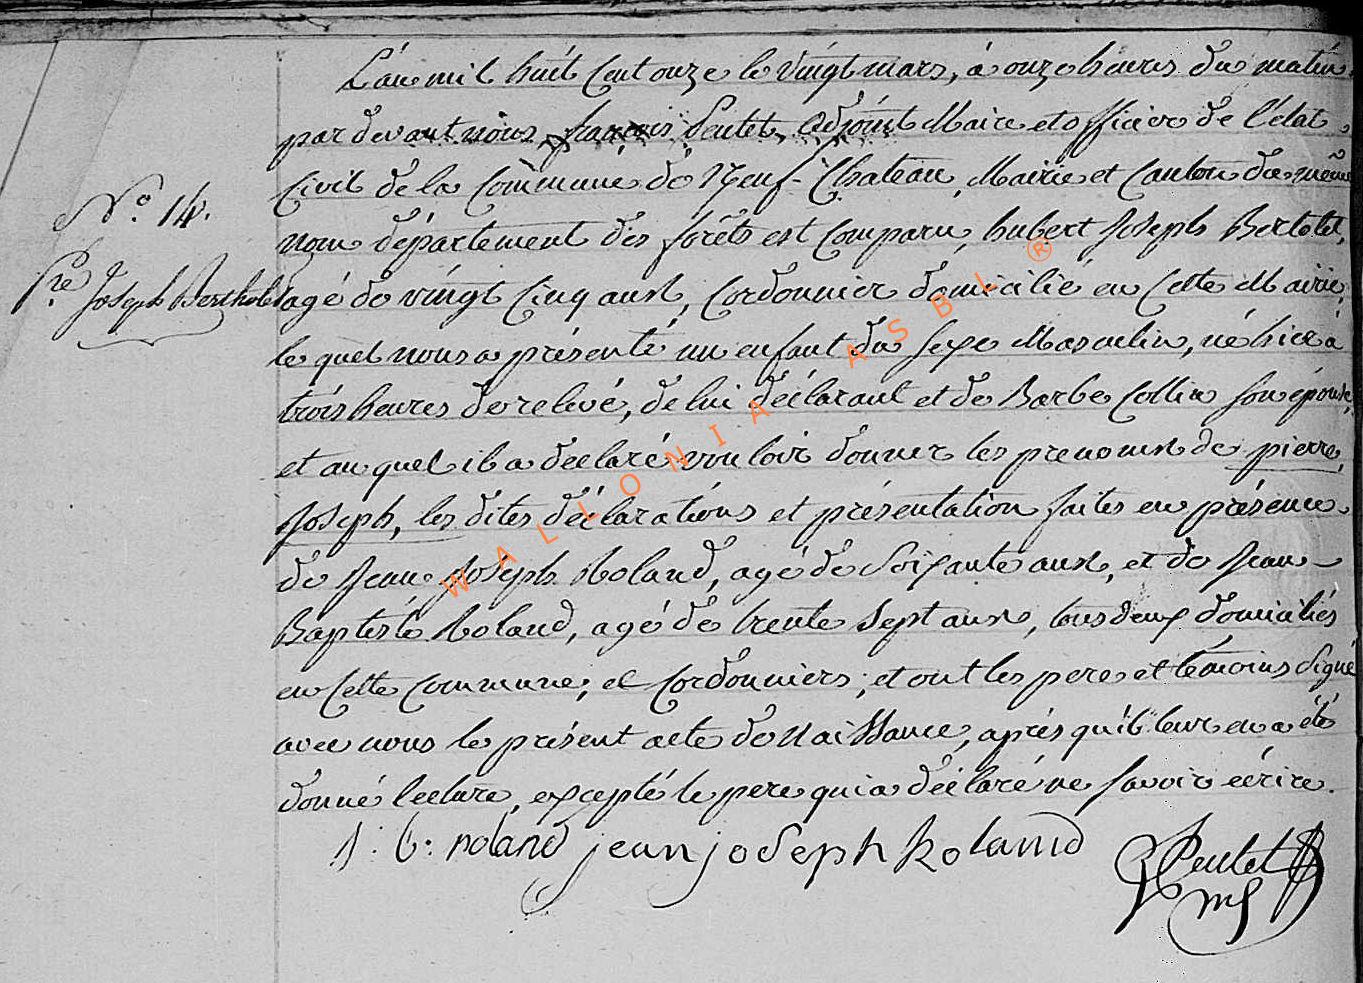 L'an mil huit cent onze le vingt mars, à onze heures du matin
par devant nous françois Peutet adjoint Maire et officier de l'état
Civil de la Commune de Neuf-Chateau, Mairie et Canton du même
nom département des forêts est comparu, hubert Joseph Bertolet,
N.º 14.
Pre. Joseph Bertholet
agé de vingt cinq ans, Cordonnier domicilié en cette Mairie,
le quel nous a présenté un enfant du sexe Masculin, né hier à
trois heures de relevé, de lui déclarant et de Barbe Collin son épouse,
et au quel il a déclaré vouloir donner les prenoms de pierre
Joseph, les dites déclarations et présentation faites en présence
de Jean Joseph Roland, agé de Soixante ans, et de Jean
Baptiste Roland, agé de trente Sept ans, tous deux domiciliés
en cette commune, et Cordonniers; et ont les pere et témoins Signé
avec nous le présent acte de Naissance, après qu'il leur en a été
donné lecture, excepté le pere qui a déclaré ne savoir écrire.
J: b: roland jean joseph Roland Peutet
WALLONIA ASBL ®